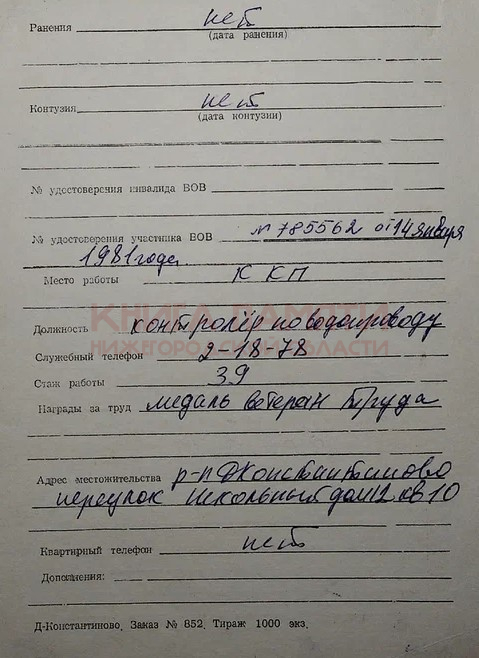 Ранения нет
(дата ранения)
Контузия нет
(дата контузии)
№ удостоверения инвалида ВОВ
№ удостоверения участника ВОВ № 785562 от 14 января
1981 года.
Место работы ККП
КНИГА ПАМЯТИ
Должность контролёр по водопроводу
НИЖЕГОРОДСКОЙ ОБЛАСТИ
Служебный телефон 2-18-78
Стаж работы 39
Награды за труд медаль Ветеран Труда
Адрес местожительства р-п Д Константиново
переулок Школьный дом 12 кв 10
Квартирный телефон нет
Дополнения:
Д-Константиново, Заказ № 852. Тираж 1000 экз.